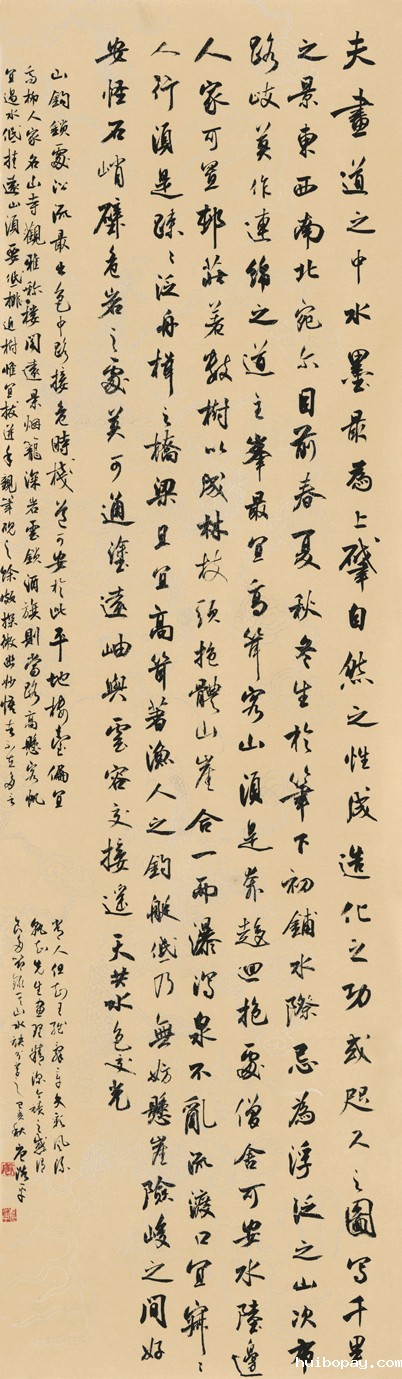 夫畫道之中水墨最為上肇自然之性成造化之功或咫尺之圖寫千里
之景東西南北宛尔目前春夏秋冬生於筆下初鋪水際忌為浮泛之山次布
路歧莫作連綿之道主峯最宜高聳客山須是奔趨迴抱處僧舍可安水陸邊
人家可置邨莊著數樹以成林枝須抱體山崖合一而瀑瀉泉不亂流渡口宜寂〻
人行須是疏〻泛舟楫之橋梁且宜高聳著漁人之釣艇低乃無妨懸崖險峻之間好
安怪石峭壁危岩之處莫可通塗遠岫與雲容交接遙天共水色交光
山鉤鎖處沿流最出其中路接危時棧道可安於此平地樓臺偏宜
高柳人家名山寺觀雅稱樓閣遠景烟籠深岩雲鎖酒旗則當路高懸客帆
宜遇水低挂遠山須要低排近樹惟宜拔迸手親筆硯之餘
huibopay.com